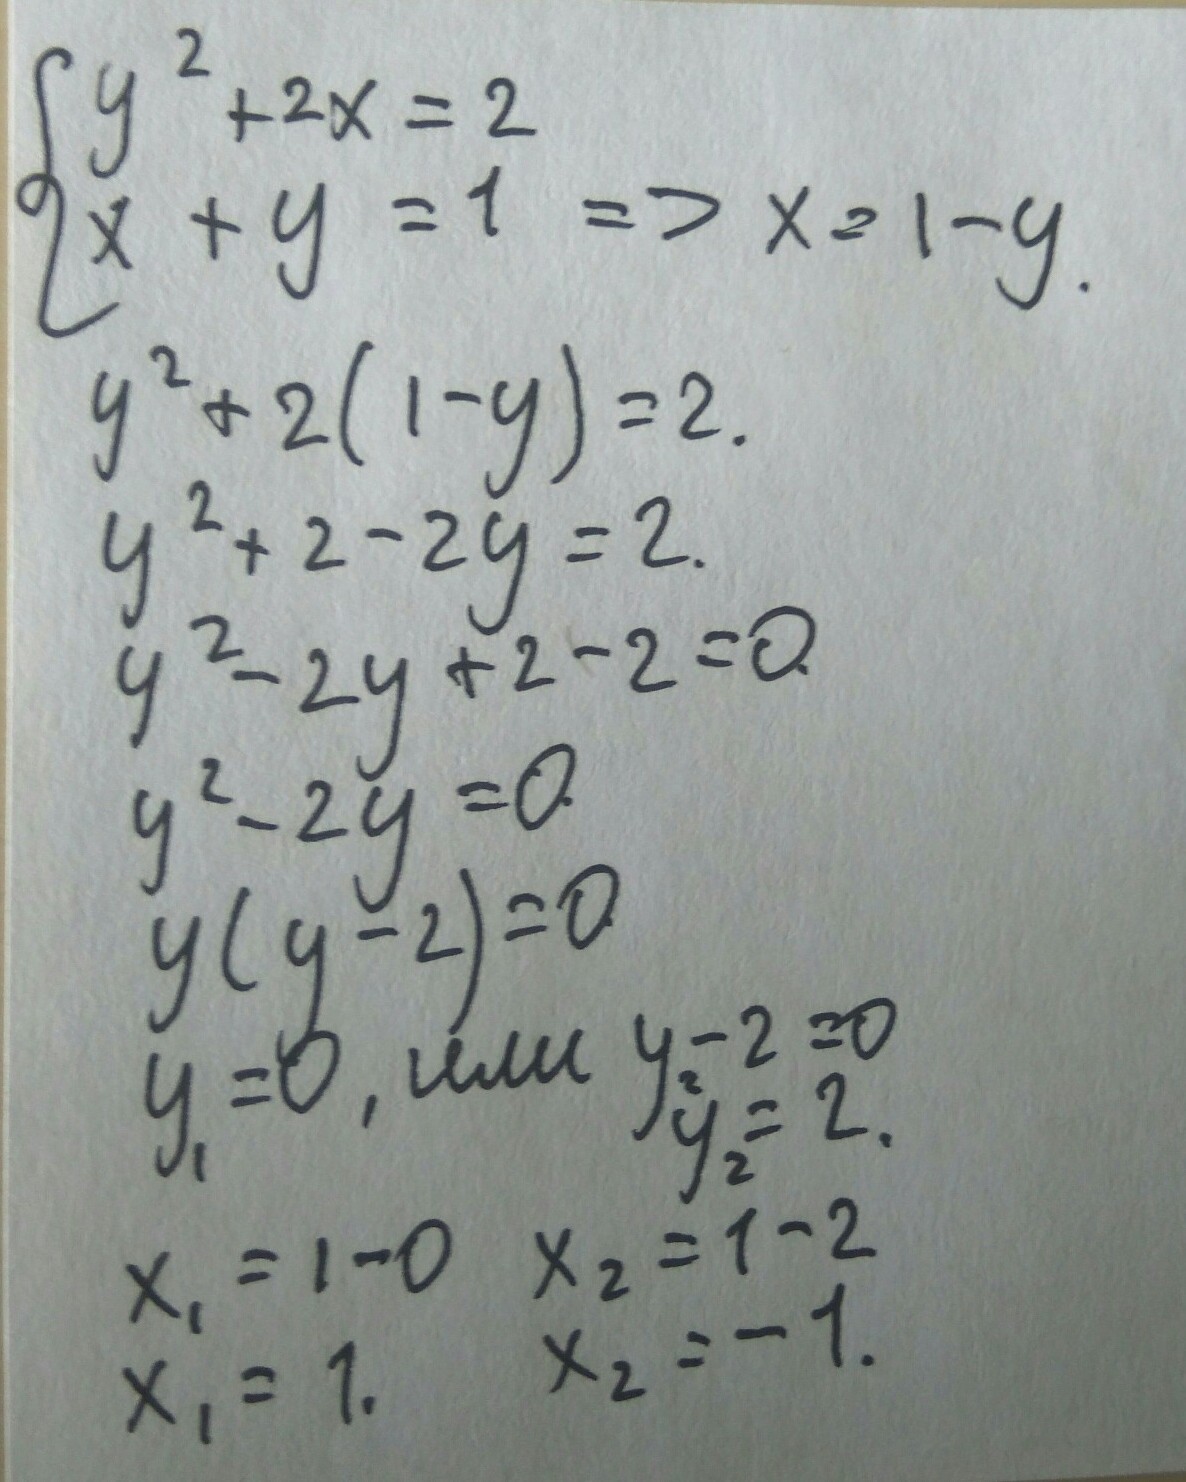 y² + 2x = 2
x + y = 1 => x = 1 - y.
y² + 2(1 - y) = 2.
y² + 2 - 2y = 2.
y² - 2y + 2 - 2 = 0.
y² - 2y = 0.
y(y - 2) = 0.
y₁ = 0, или y₂ - 2 = 0
y₂ = 2.
x₁ = 1 - 0 x₂ = 1 - 2
x₁ = 1. x₂ = -1.